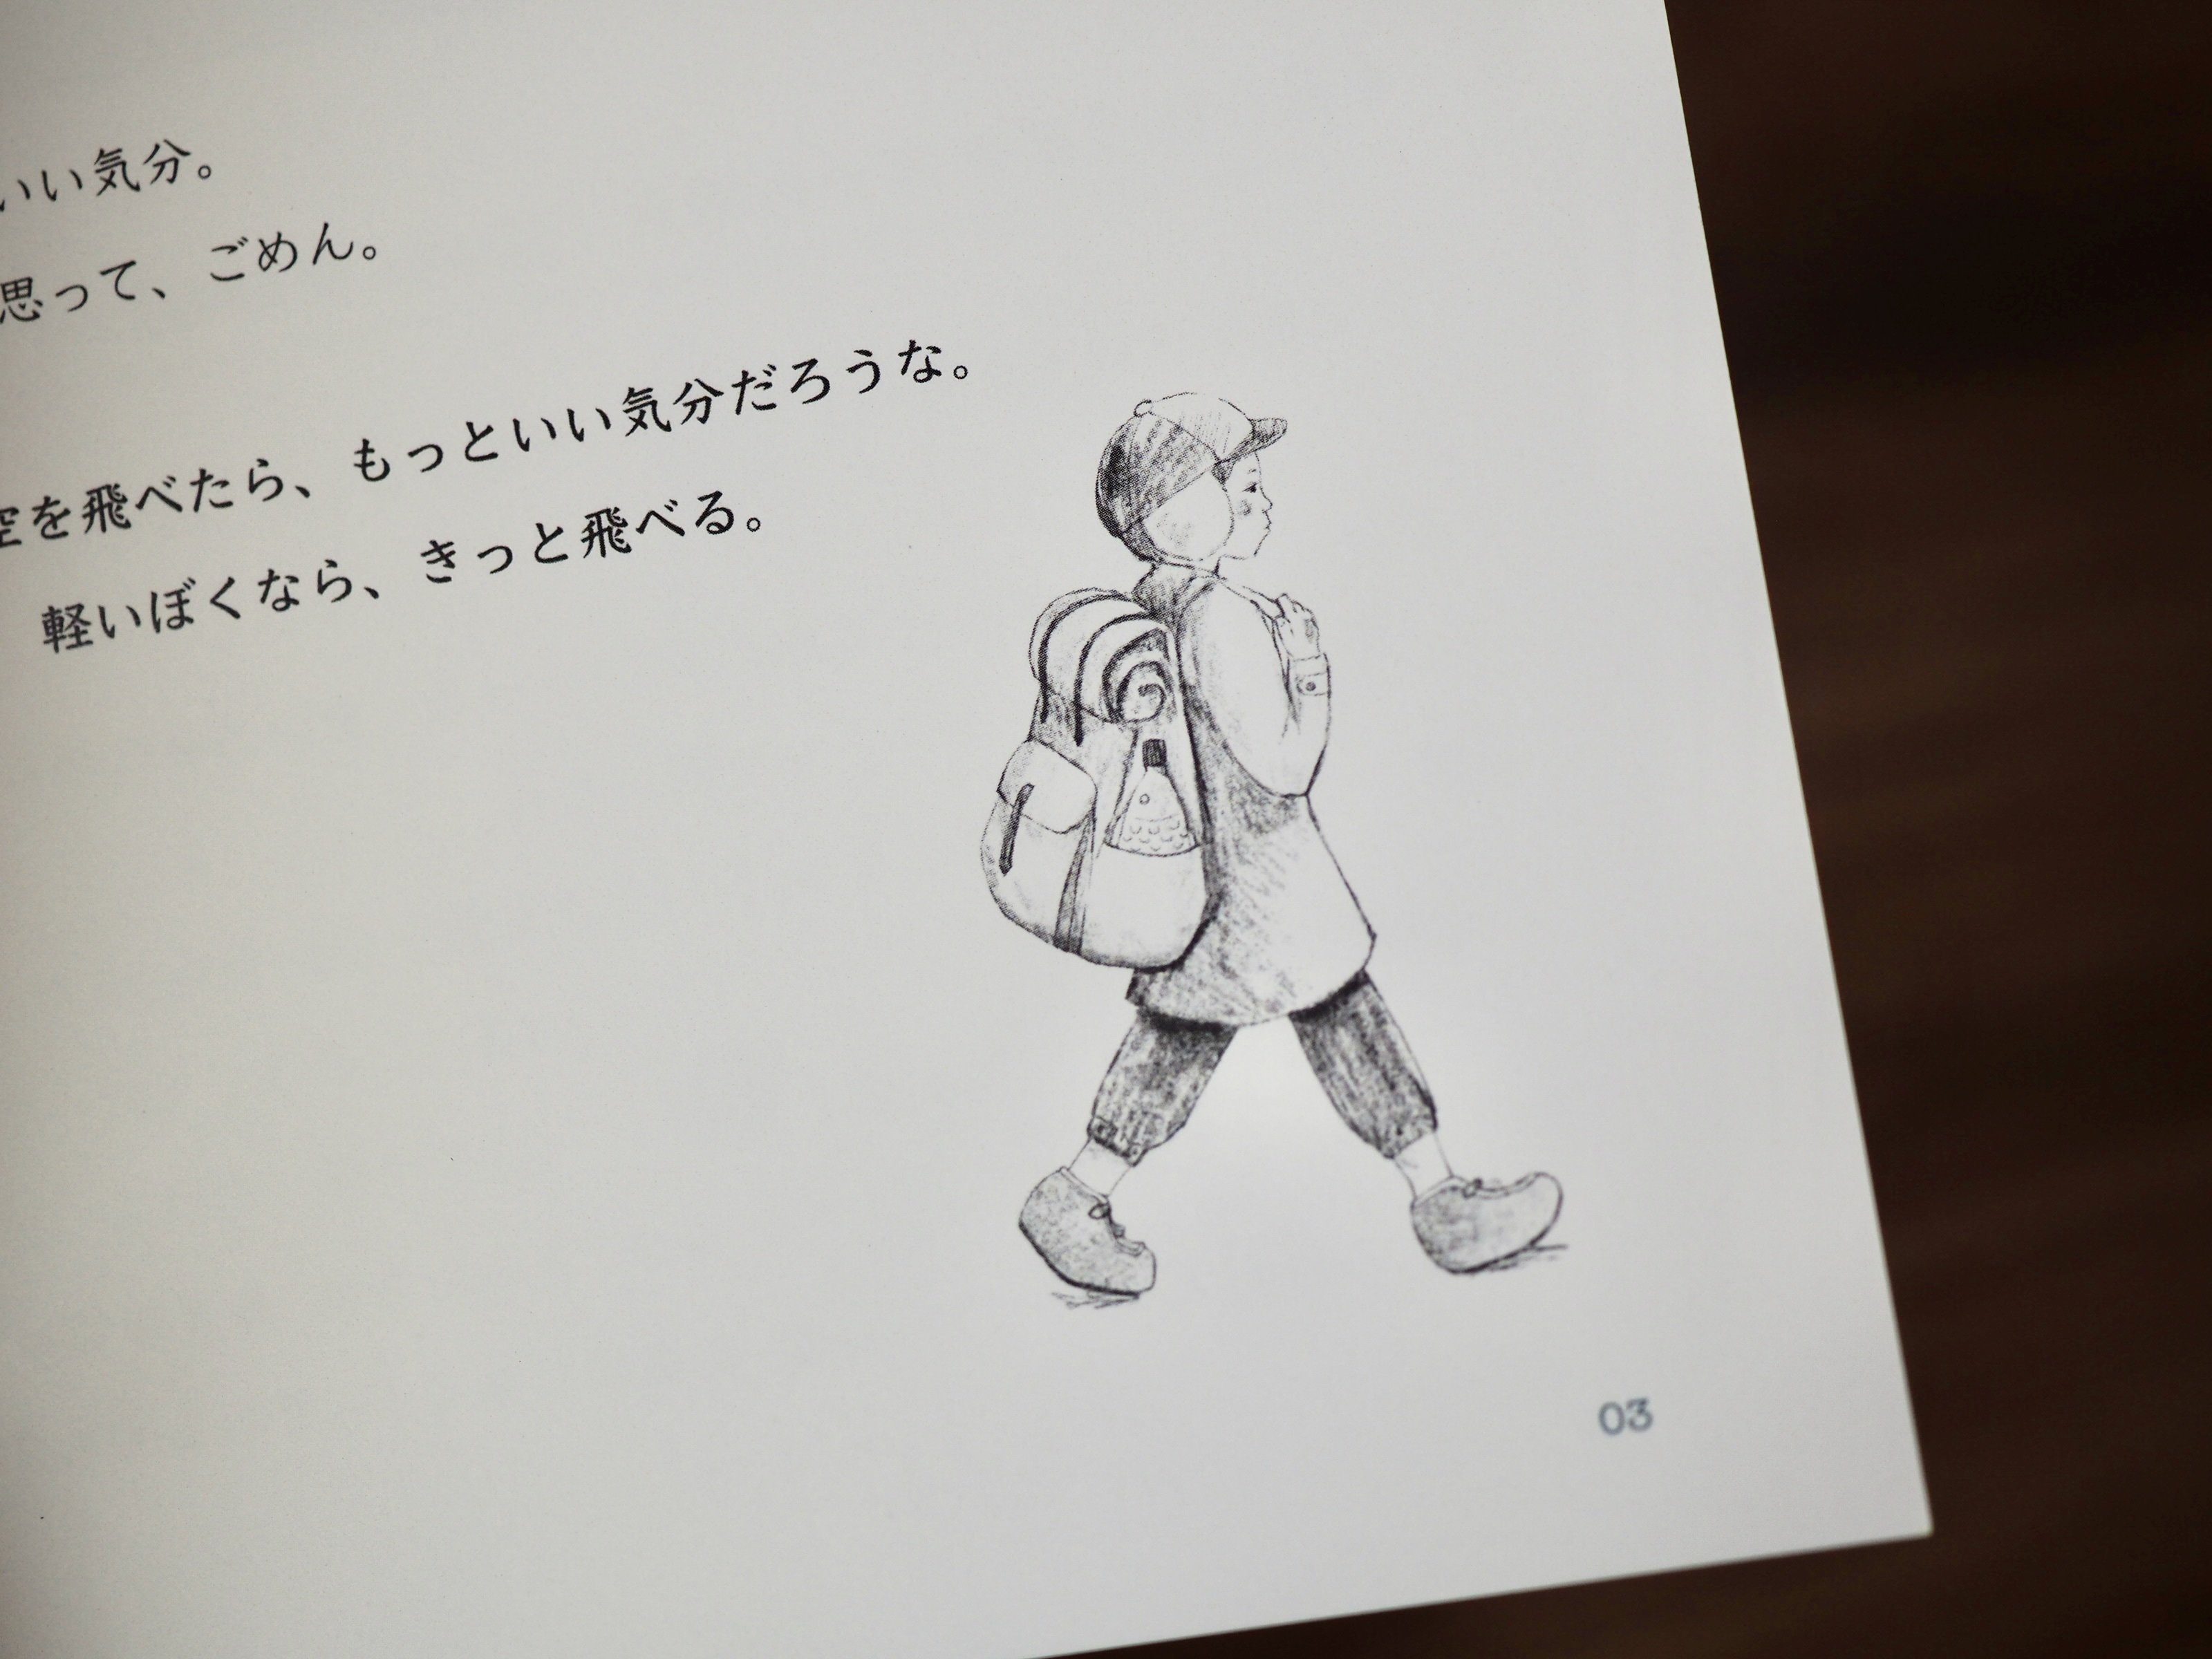 いい気分。
思って、ごめん。
空を飛べたら、もっといい気分だろうな。
軽いぼくなら、きっと飛べる。
03